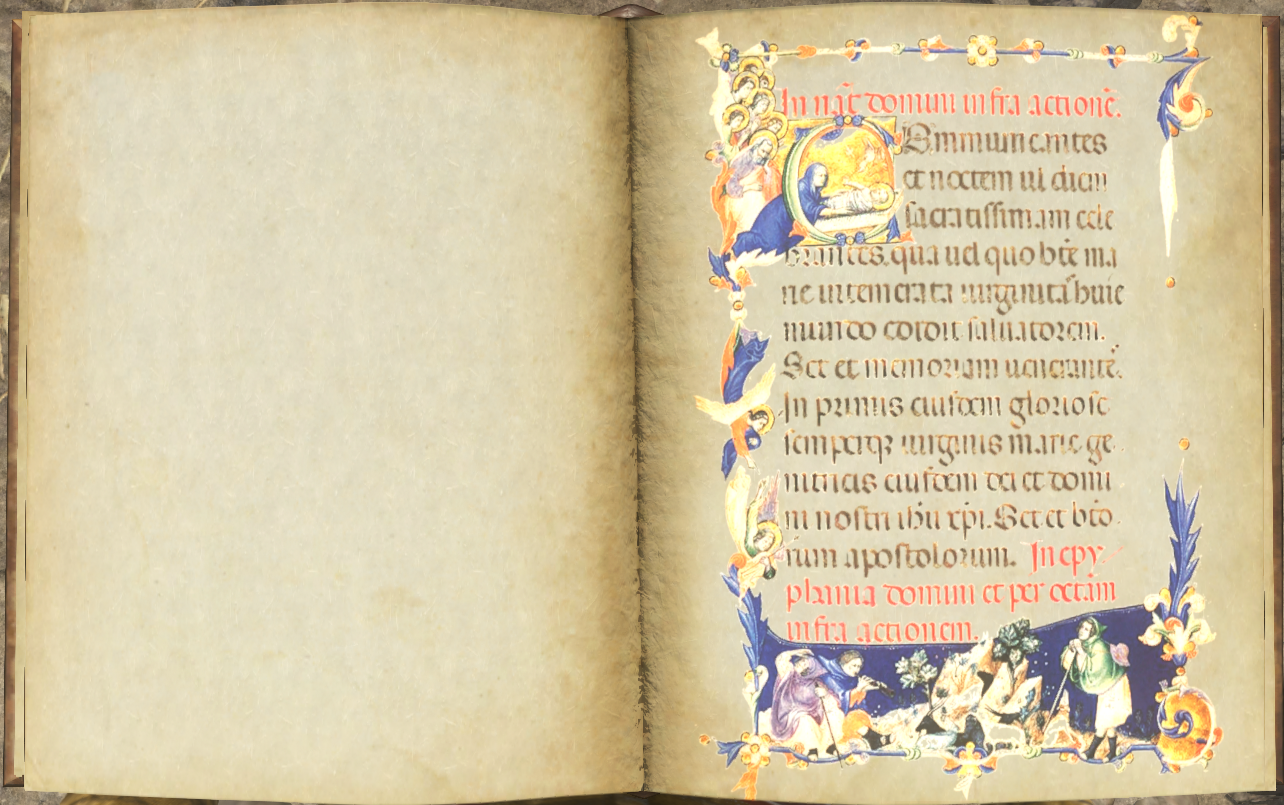 In nat̄ domini infra actionē.
Communicantes
et noctem uel diem
sacratissimam cele
brantes. qua uel quo bt̄e ma
rie intemerata uirginitas huic
mundo edidit saluatorem.
Set et memoriam uenerantē.
In primis eiusdem gloriose
semperq; uirginis marie ge
nitricis eiusdem dei et domi
ni nostri ihu xpi. Set et bt̄o
rum apostolorum. In epy
phania domini et per octam
infra actionem.